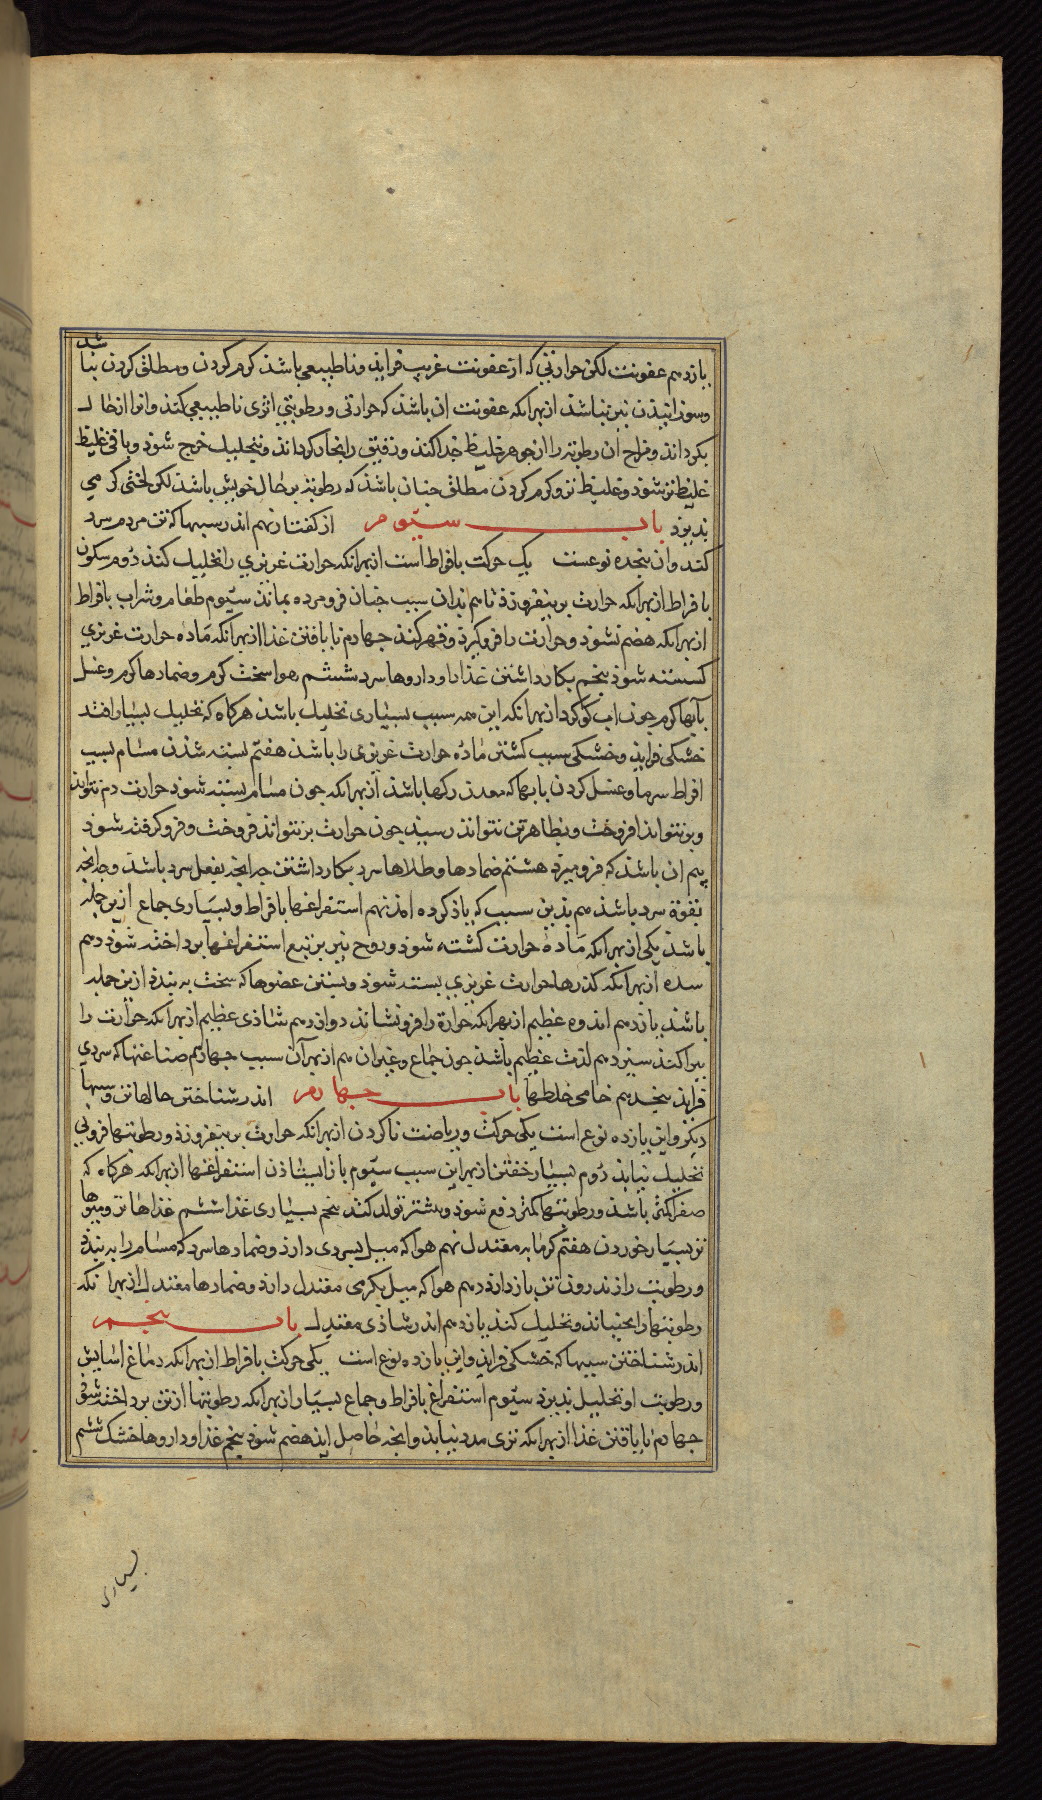 یازدهم عفونت لکن حرارتی که از عفونت غریب فزاید و ناطبیعی باشد کرم کردن و مطلق کردن نباشد
وسوزانیدن نیز نباشد از بهرانکه عفونت ان باشد که حرارتی و رطوبتی اثری ناطبیعی کند وانرا از حال
بکرداند و مزاج ان رطوبة را از جوهر غلیظ جدا کند ورقیق را بخار کرداند وبتحلیل خرج شود و باقی غلیظ
غلیظ تر شود و غلیظ تر و کرم کردن مطلق جنان باشد که رطوبة بر حال خویش باشد لکن لختی کرمی
بذیرد باب سیوم از کفتار نهم اندر سببها که تن مردم سرد
کند وان پنجده نوعست یکی حرکت بافراط است ازبهرانکه حرارت غریزی را تحلیل کند دوم سکون
بافراط ازبهرانکه حرارت برنیفروزد تا هم بدان سبب جنان فرومرده بماند سیوم طعام وشراب بافراط
ازبهرانکه هضم نشود و حرارت را فروکیرد و قهر کند جهارم نایافتن غذا ازبهرانکه ماده حرارت غریزی
کسسته شود پنجم بکار داشتن غذاها و داروها سرد ششم هوا سخت کرم و ضمادها کرم و غسل
بآبها کرم جون اب کوکرد ازبهرانکه این همه سبب بسیاری تحلیل باشد هرکاه که تحلیل بسیار افتد
خشکی فزاید و خشکی سبب کشتن ماده حرارت غریزی را باشد هفتم بسته شدن مسام بسبب
افراط سرما و غسل کردن بآبها که معدن زکها باشد ازبهرانکه جون مسام بسته شود حرارت دم نتواند
وبر نتواند افروخت وبظاهر تن نتواند رسید جون حرارت بر نتواند فروخت و فروکرفته شود
بیم ان باشد که فرومیرد هشتم ضمادها و طلاها سرد بکار داشتن جه انجه بفعل سرد باشد وجه انجه
بقوة سرد باشد هم بدین سبب که یاذ کرده امد نهم استفراغها بافراط و بسیاری جماع ازین جمله
باشد یکی ازبهرانکه ماده حرارت کشته شود و روح نیز بر تبع استفراغها برداخته شود دهم
سده ازبهرانکه کذرها حرارت غریزی بسته شود وبستن عضوها که سخت به بندند ازین جمله
باشد یازدهم اندوه عظیم ازبهرانکه حرارة را فرونشاند دوازدهم شاذی عظیم ازبهرانکه حرارت را
بپراکند سیزدهم لذت عظیم باشد جون جماع و غیر ان هم ازبهر آن سبب جهاردهم صناعتها که سردی
فزاید پنجدهم خامی خلطها باب جهارم اندر شناختن حالها تن و سببها
دیکر واین یازده نوع است یکی حرکت وریاضت ناکردن ازبهرانکه حرارت برنیفروزد ورطوبتها فزونی
تحلیل نیابد دوم بسیار خفتن ازبهر این سبب سیوم باز ایستاذن استفراغها ازبهرانکه هرکاه که
صفرا کمتر باشد ورطوبتها کمتر دفع شود و بیشتر تولد کند پنجم بسیاری غذا ششم غذاها تر و میوها
تر بسیار خوردن هفتم کرمابه معتدل نهم هوا که میل بسردی دارد وضمادها سرد که مسام را به بندد
و رطوبت را اندرون تن باز دارد دهم هوا که میل بکرمی معتدل دارد و ضمادها معتدل ازبهرانکه
رطوبتها را بجنباند و تحلیل کند یازدهم اندر شاذی معتدل باب پنجم
اندر شناختن سببها که خشکی فزاید واین یازده نوع است یکی حرکت بافراط ازبهرانکه دماغ اسایش
ورطوبت او تحلیل بذیرد سیوم استفراغ بافراط و جماع بسیار ازبهرانکه رطوبتها از تن برداخته شود
جهارم نایافتن غذا ازبهرانکه تری مدد نیابد وانجه حاصل اید هضم شود پنجم غذا و داروها خشک ششم
بسیاری